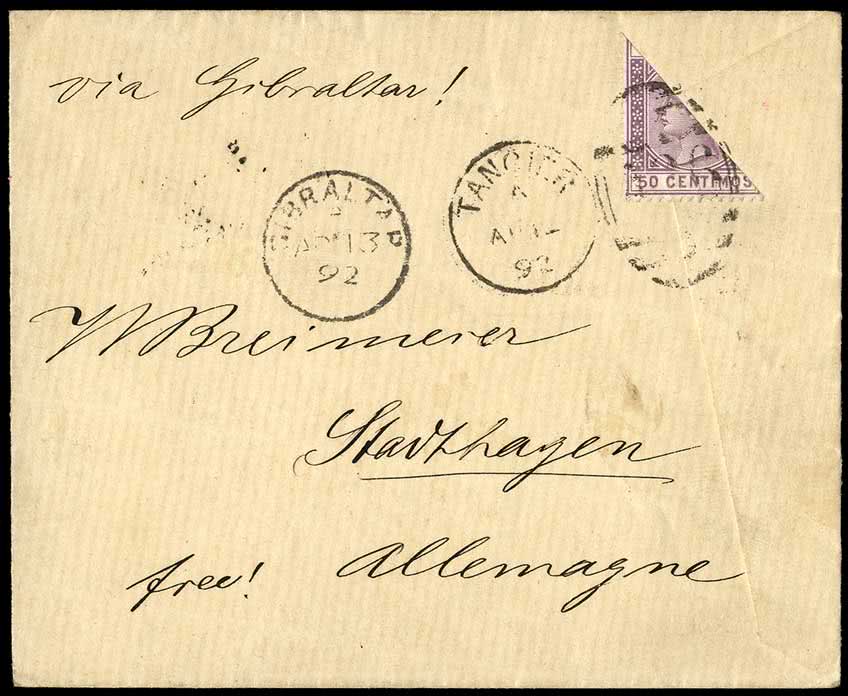 via Gibraltar!
50 CENTIMOS
GIBRALTAR
A
AP 13
92
TANGIER
A
AP 12
92
W Breimeier
Stadthagen
free! Allemagne